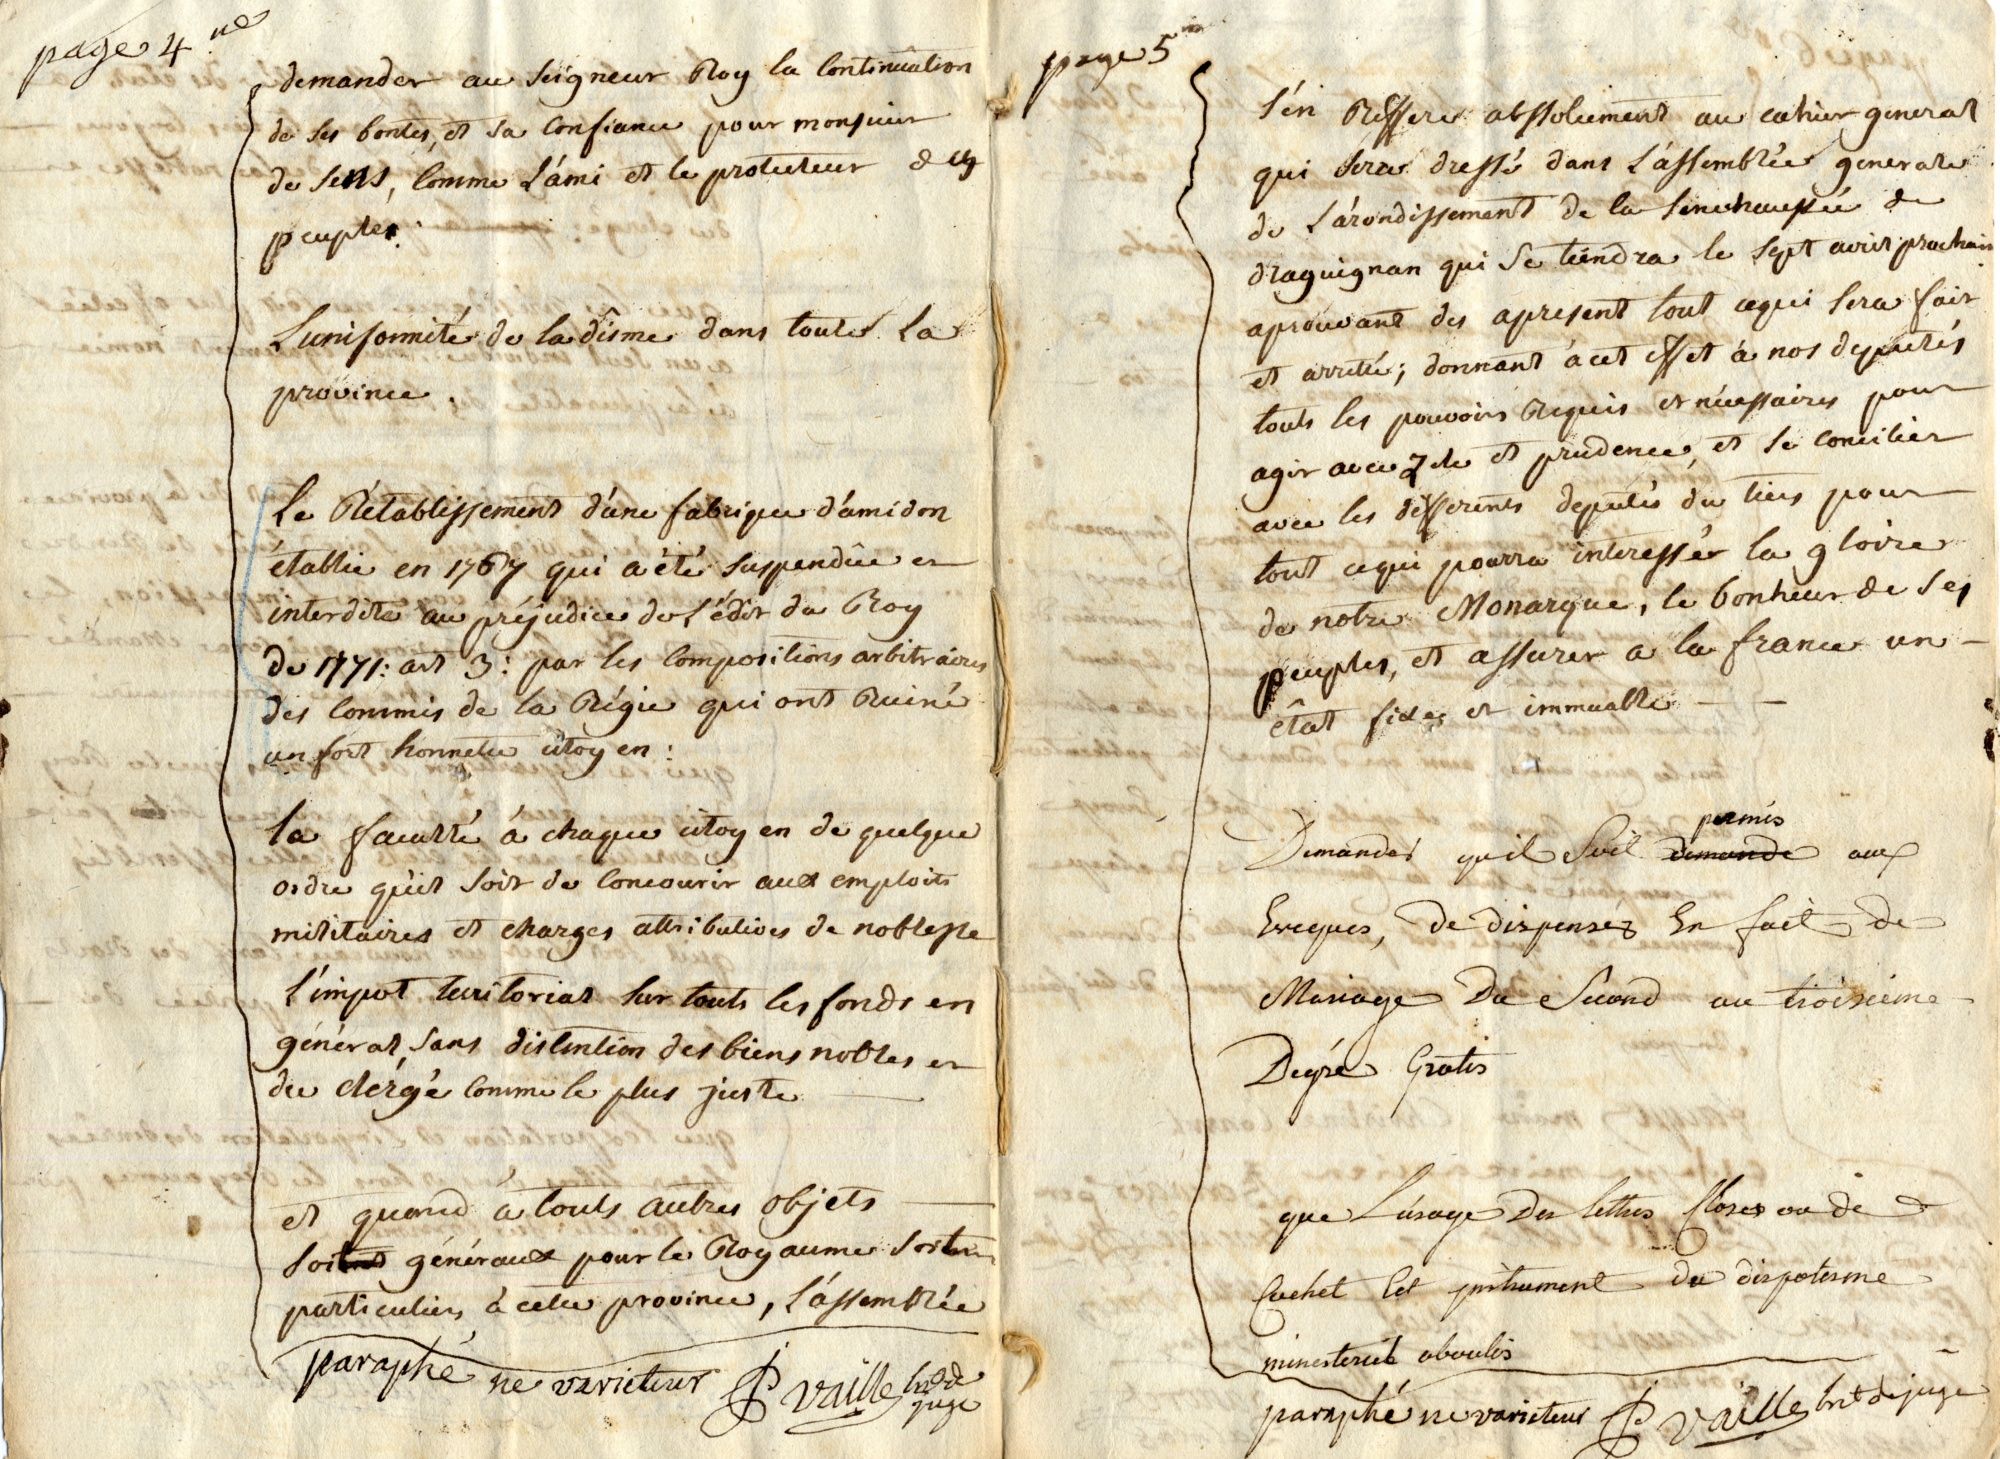 page 4 me
demander au seigneur Roy la Continuation
de ses bontés, et sa Confiance pour monsieur
de sens, Comme L'ami et le protecteur des
peuples.
L'uniformité de la dîsme dans toute La
province.
Le Rétablissement d'une fabrique d'amidon
établie en 1767 qui a été suspendûe et
interdite au préjudice de L'édit du Roy
de 1771: art 3: par les Compositions arbitraires
des Commis de la Régie qui ont Ruiné
un fort honnete citoyen:
la faculté á chaque citoyen de quelque
ordre qu'il soit de Concourir aux emploits
militaires et charges attributives de noblesse
L'impot territorial sur touts les fonds en
général, sans distintion des biens nobles et
du clérgé Comme le plus juste
et quand á touts autres objets
soit généraux pour le Royaume soit
particuliers á cette province, L'assemblée
paraphé ne varietur Vaille lnt de juge
page 5 me
s'en Reffere absolument au cahier general
qui sera dressé dans L'assemblée generale
de L'arondissement de la senechaussée de
draguignan qui se tiendra le sept avril prochain
aprouvant des apresent tout cequi sera fait
et arretté; donnant á cet effet á nos députés
touts les pouvoirs Requis et nécessaires pour
agir avec zele et prudence, et se concilier
avec les differents deputés du tiers pour
tout cequi pourra interessér la gloire
de notre Monarque, le bonheur de ses
peuples, et assurer a la france un
état fixe et immuable
permis
Demander quil soit demande aux
Eveques, de dispenser En fait de
Mariage Du Second au troisieme
Degré Gratis
que L'usage Des lettres Closes ou de
Cachet Cet instrument du dispotisme
ministeriel aboulis
paraphé ne varietur Vaille lnt de juge